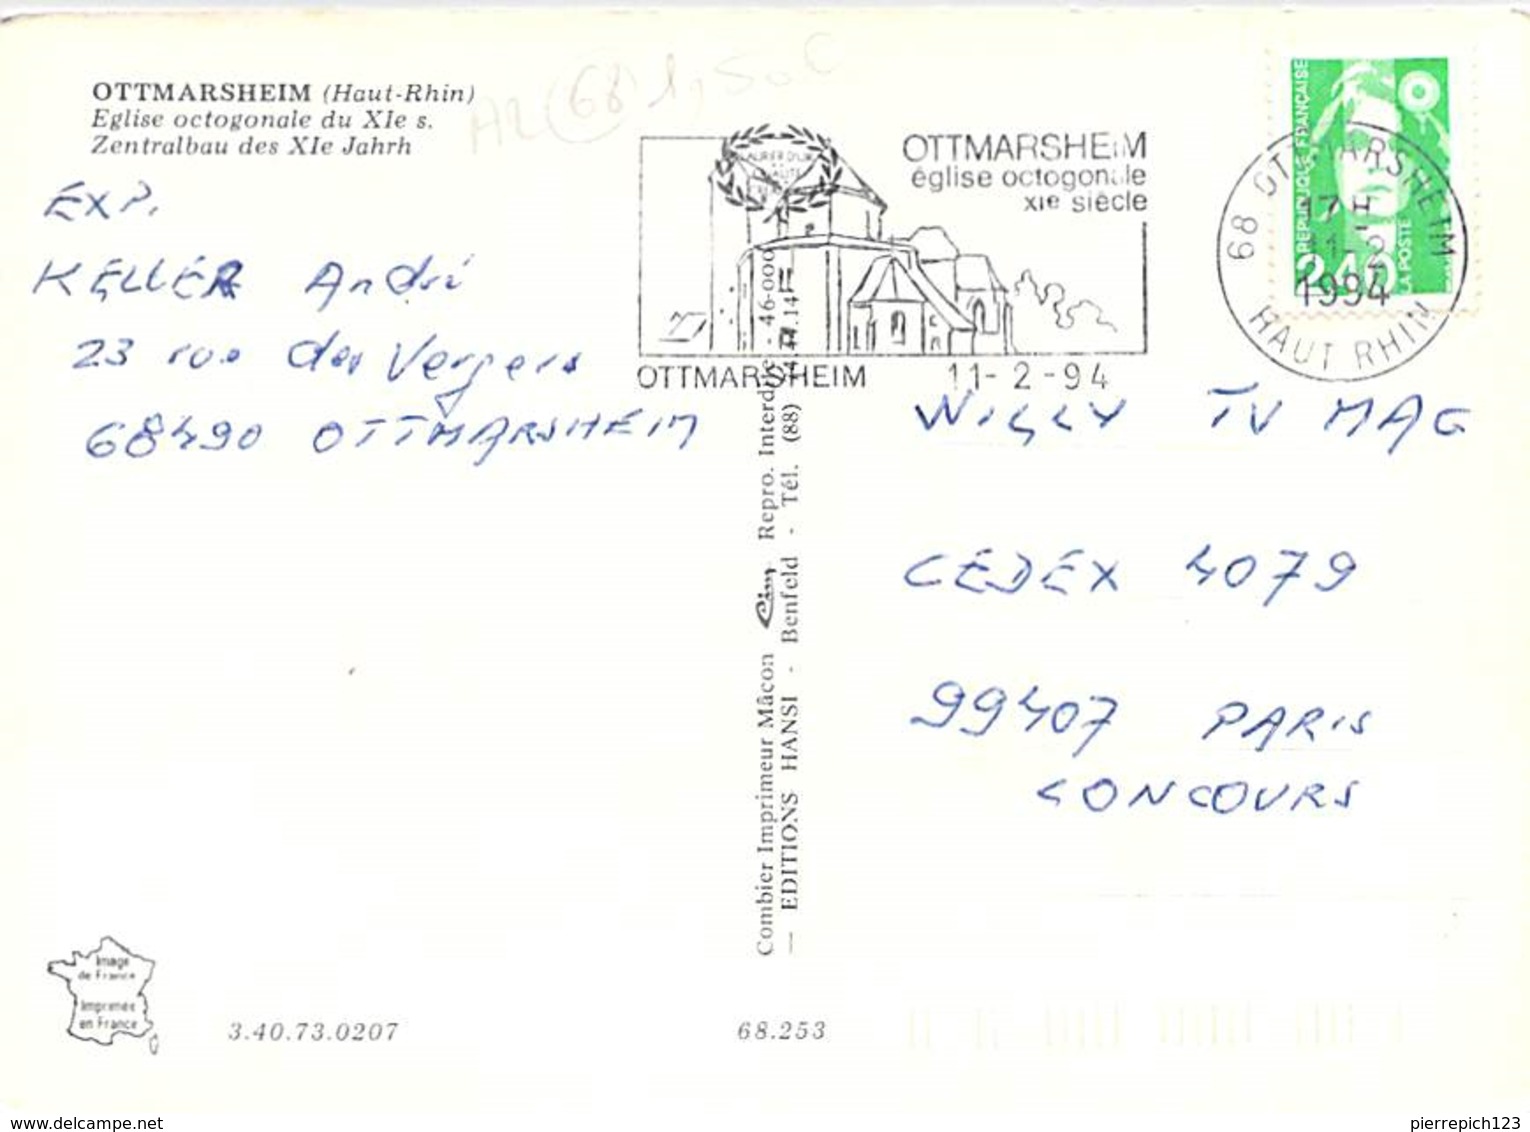 OTTMARSHEIM (Haut-Rhin)
Eglise octogonale du XIe s.
Zentralbau des XIe Jahrh
A2 (68) 1,50 €
EXP.
KELLER André
23 rue des Vergers
68490 OTTMARSHEIM
OTTMARSHEIM
église octogonale
XIe siècle
OTTMARSHEIM 11-2-94
REPUBLIQUE FRANÇAISE
2,40
LA POSTE
68 OTTMARSHEIM
17 H
11-2
1994
HAUT RHIN
WILLY TV MAG
CEDEX 4079
99407 PARIS
CONCOURS
Combier Imprimeur Mâcon Cim Repro. Interdite - 46-000
— EDITIONS HANSI - Benfeld - Tél. (88) 74.44.14
Image
de France
Imprimée
en France
3.40.73.0207
68.253
www.delcampe.net
pierrepich123